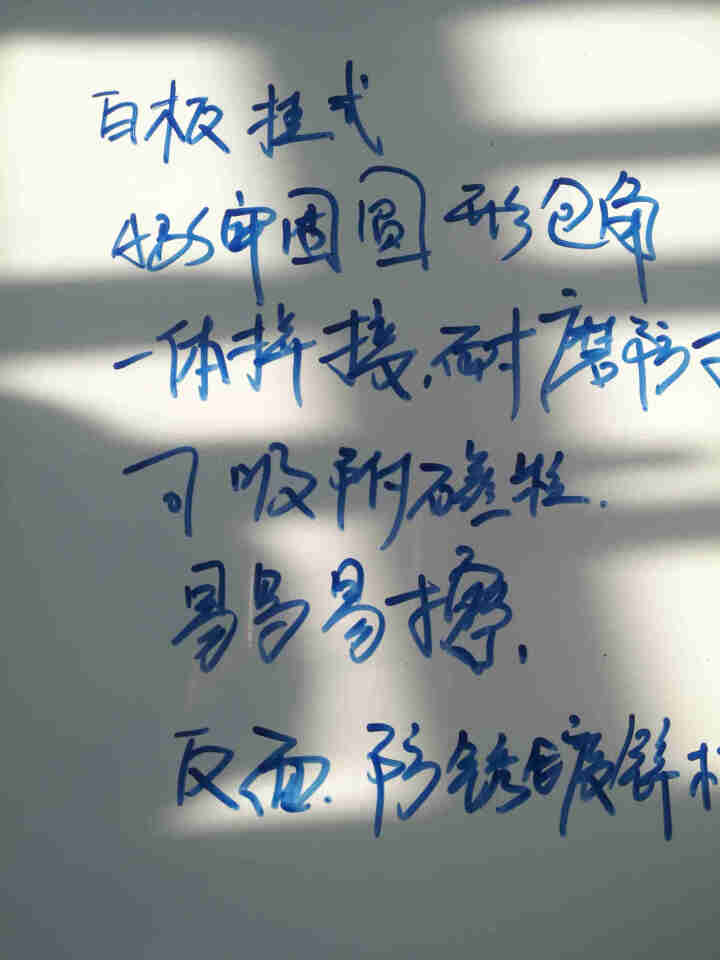 白板挂式
ABS牢固圆形包角
一体拼接,耐磨防
可吸附磁性.
易写易擦,
反面.防锈镀锌